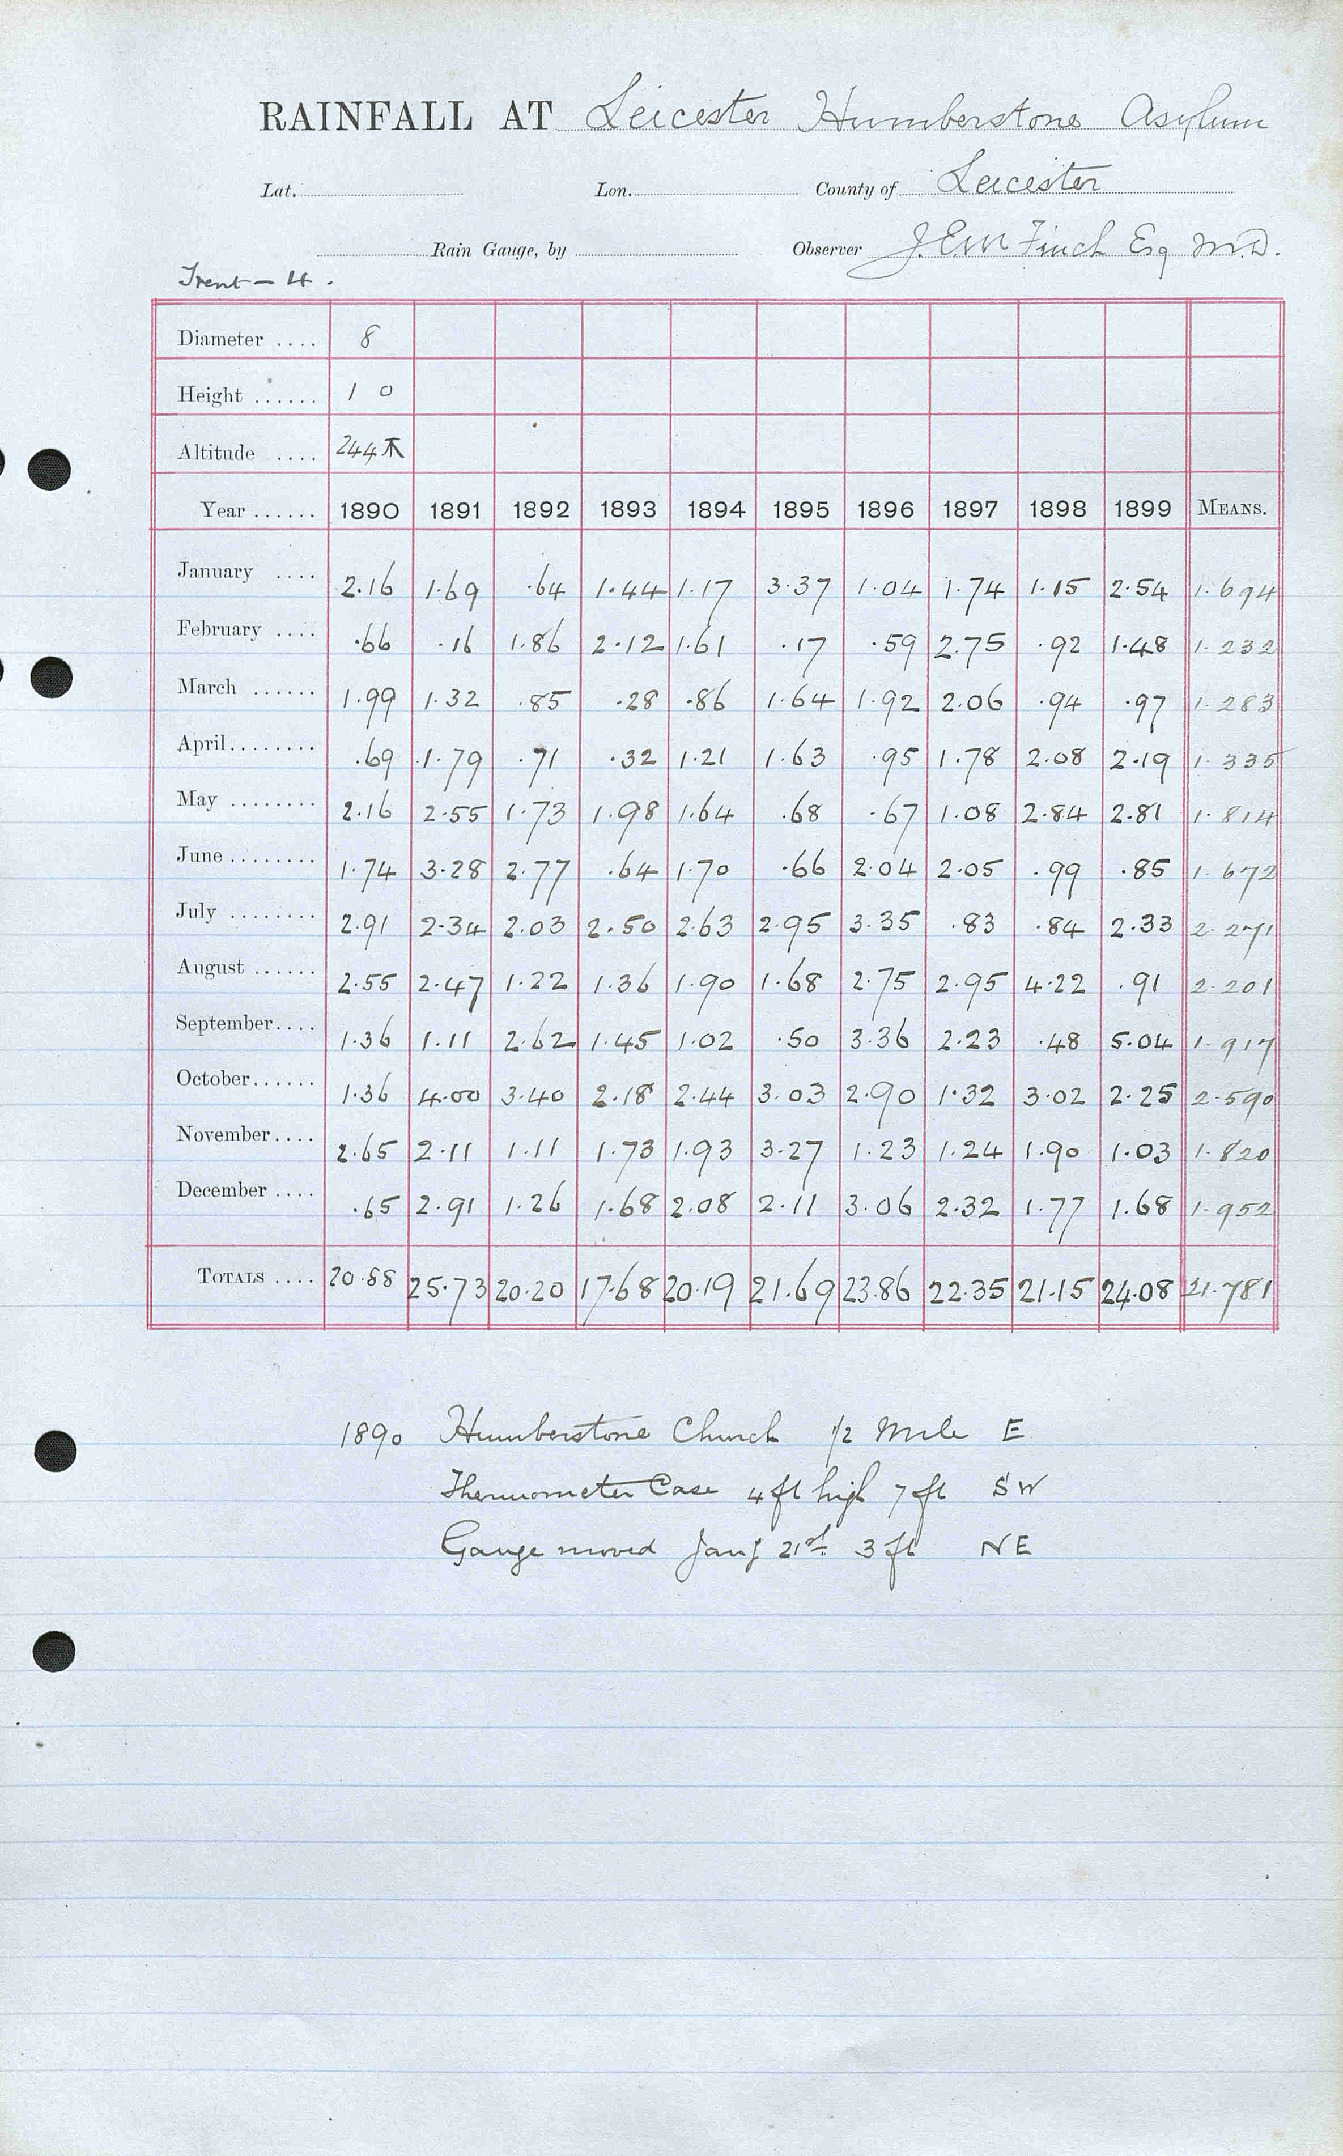 RAINFALL AT Leicester Humberstone Asylum
Lat. Lon. County of Leicester
Rain Gauge, by Observer J.E.M Finch Esq M.D.
Trent - 4.
Diameter .... 8
Height ...... 1 0
Altitude .... 244
Year ...... 1890 1891 1892 1893 1894 1895 1896 1897 1898 1899 MEANS.
January .... 2.16 1.69 .64 1.44 1.17 3.37 1.04 1.74 1.15 2.54 1.694
February .... .66 .16 1.86 2.12 1.61 .17 .59 2.75 .92 1.48 1.232
March ...... 1.99 1.32 .85 .28 .86 1.64 1.92 2.06 .94 .97 1.283
April ........ .69 1.79 .71 .32 1.21 1.63 .95 1.78 2.08 2.19 1.335
May ........ 2.16 2.55 1.73 1.98 1.64 .68 .67 1.08 2.84 2.81 1.814
June ........ 1.74 3.28 2.77 .64 1.70 .66 2.04 2.05 .99 .85 1.672
July ........ 2.91 2.34 2.03 2.50 2.63 2.95 3.35 .83 .84 2.33 2.271
August ...... 2.55 2.47 1.22 1.36 1.90 1.68 2.75 2.95 4.22 .91 2.201
September .... 1.36 1.11 2.62 1.45 1.02 .50 3.36 2.23 .48 5.04 1.917
October ...... 1.36 4.00 3.40 2.18 2.44 3.03 2.90 1.32 3.02 2.25 2.590
November .... 2.65 2.11 1.11 1.73 1.93 3.27 1.23 1.24 1.90 1.03 1.820
December .... .65 2.91 1.26 1.68 2.08 2.11 3.06 2.32 1.77 1.68 1.952
TOTALS .... 20.88 25.73 20.20 17.68 20.19 21.69 23.86 22.35 21.15 24.08 21.781
1890 Humberstone Church 1/2 Mile E
Thermometer Case 4 ft high 7 ft SW
Gauge moved Jany 21st 3 ft NE